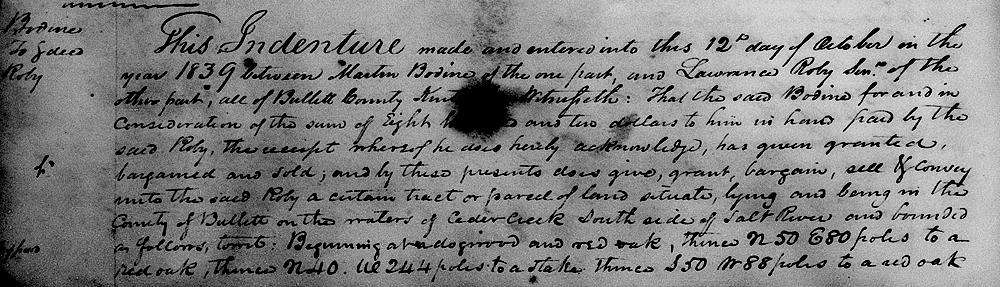 Bodine
To } deed
Roby
This Indenture made and entered into this 12th day of October in the
year 1839 between Martin Bodine of the one part, and Lawrance Roby Senr. of the
other part, all of Bullitt County Witnesseth: That the said Bodine for and in
Consideration of the sum of Eight and two dollars to him in hand paid by the
said Roby, the receipt whereof he does hereby acknowledge, has given granted,
bargained and sold; and by these presents does give, grant, bargain, sell & Convey
unto the said Roby a certain tract or parcel of land situate, lying and being in the
County of Bullitt on the waters of Cedar Creek South side of Salt River and bounded
as follows, towit: Beginning at a dogwood and red oak, thence N 50 E 80 poles to a
red oak, thence N 40. W 244 poles to a stake thence S 50 W 88 poles to a red oak